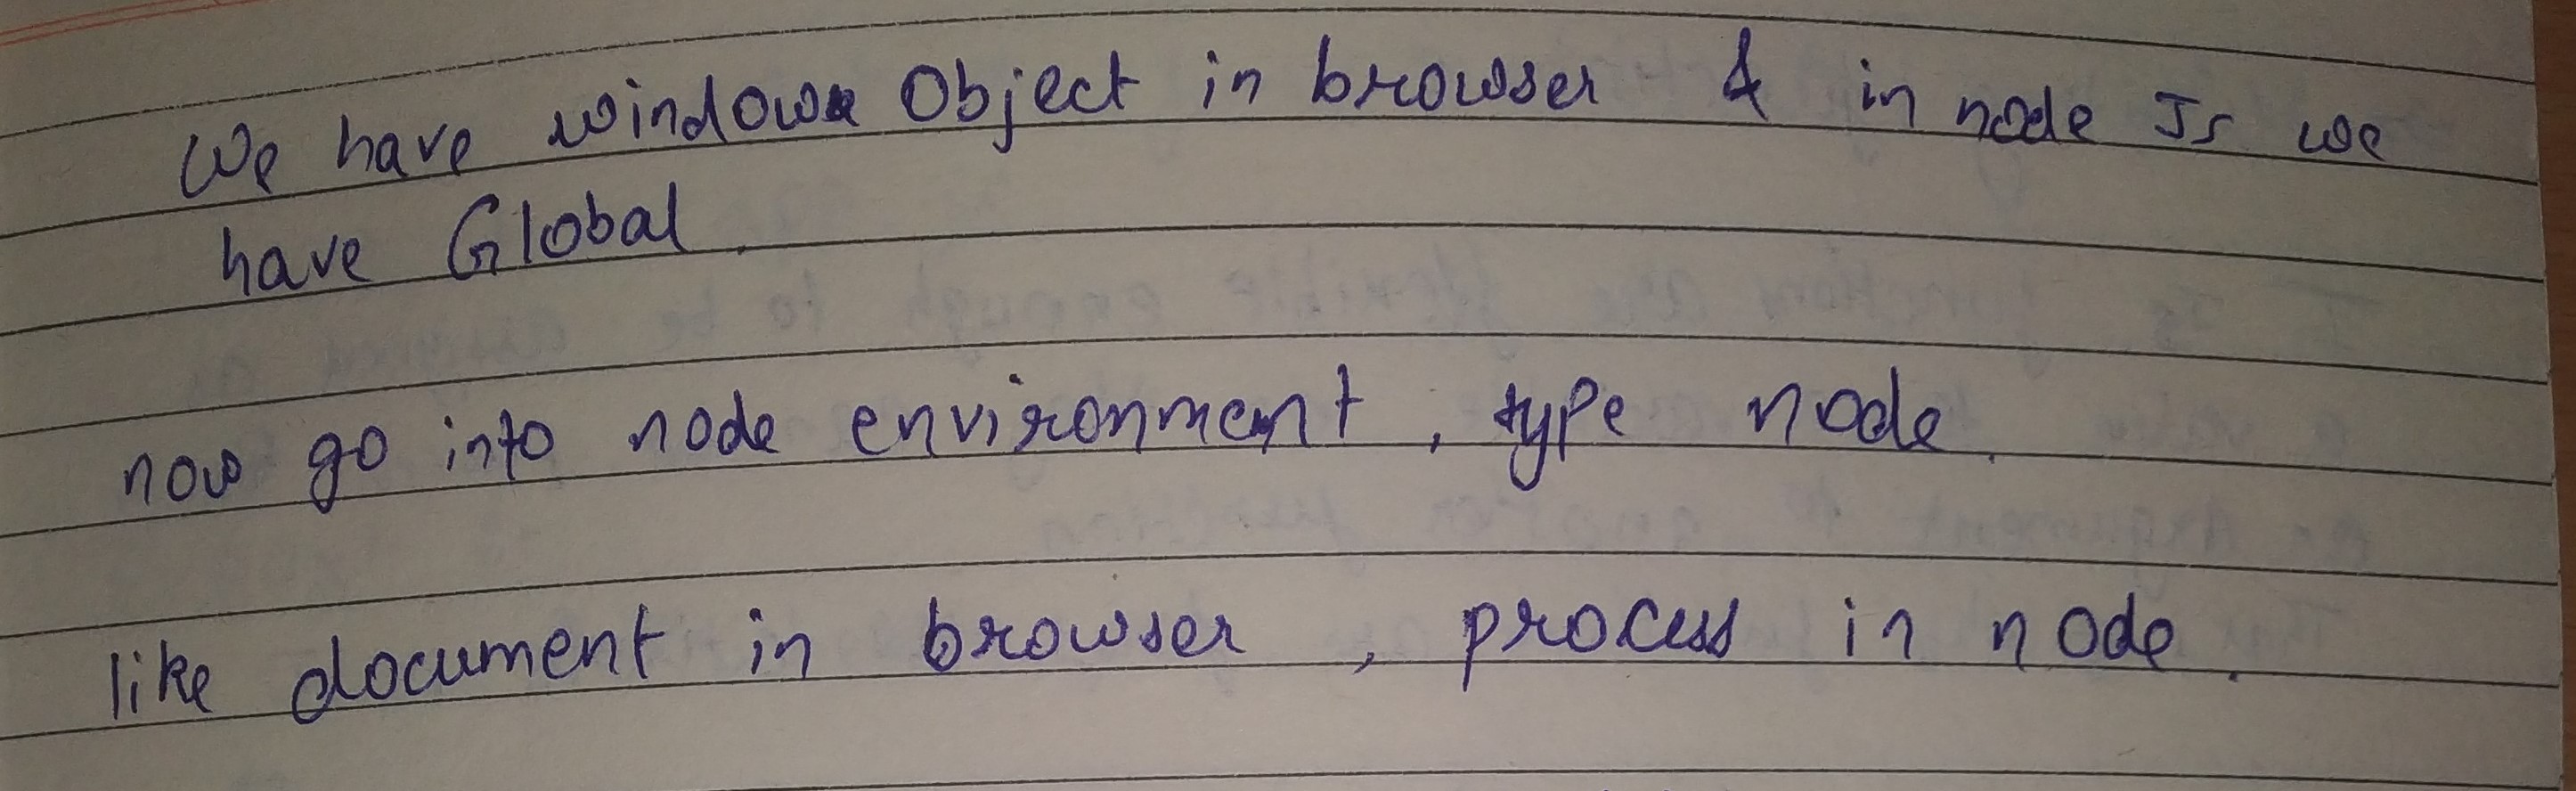 We have window Object in browser & in node Js we
have Global.
now go into node environment, type node.
like document in browser, process in node.